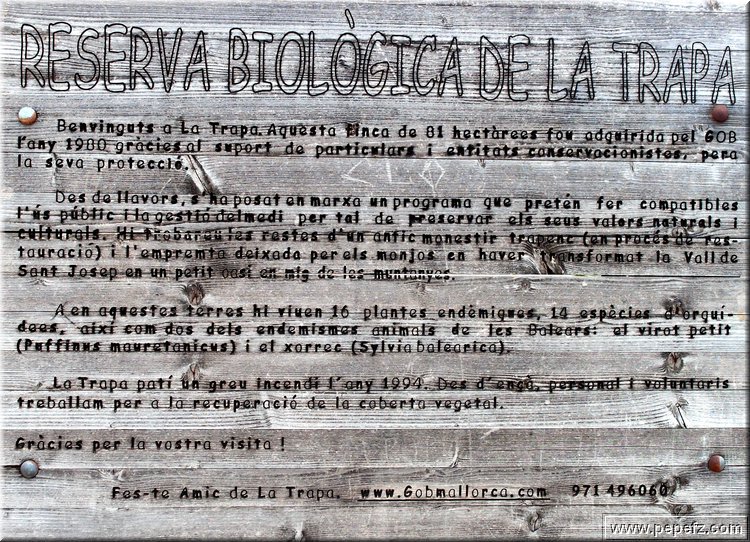 RESERVA BIOLÒGICA DE LA TRAPA
Benvinguts a La Trapa. Aquesta finca de 81 hectàrees fou adquirida pel GOB
l'any 1980 gràcies al suport de particulars i entitats conservacionistes, pera
la seva protecció.
Des de llavors, s'ha posat en marxa un programa que pretén fer compatibles
l'ús públic i la gestió del medi per tal de preservar els seus valors naturals i
culturals. Hi trobareu les restes d'un antic monestir trapenc (en procés de res-
tauració) i l'empremta deixada per els monjos en haver transformat la Vall de
Sant Josep en un petit oasi en mig de les muntanyes.
A en aquestes terres hi viuen 16 plantes endèmiques, 14 espècies d'orquí-
dees, així com dos dels endemismes animals de les Balears: el virot petit
(Puffinus mauretanicus) i el xorrec (Sylvia balearica).
La Trapa patí un greu incendi l'any 1994. Des d'ençà, personal i voluntaris
treballam per a la recuperació de la coberta vegetal.
Gràcies per la vostra visita !
Fes-te Amic de La Trapa. www.Gobmallorca.com 971 496060
www.pepefz.com